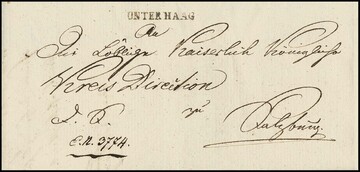 UNTERHAAG
An
Die Löbliche Kaiserlich Königliche
Kreis Direction
zu
Salzburg
E.N. 3774.